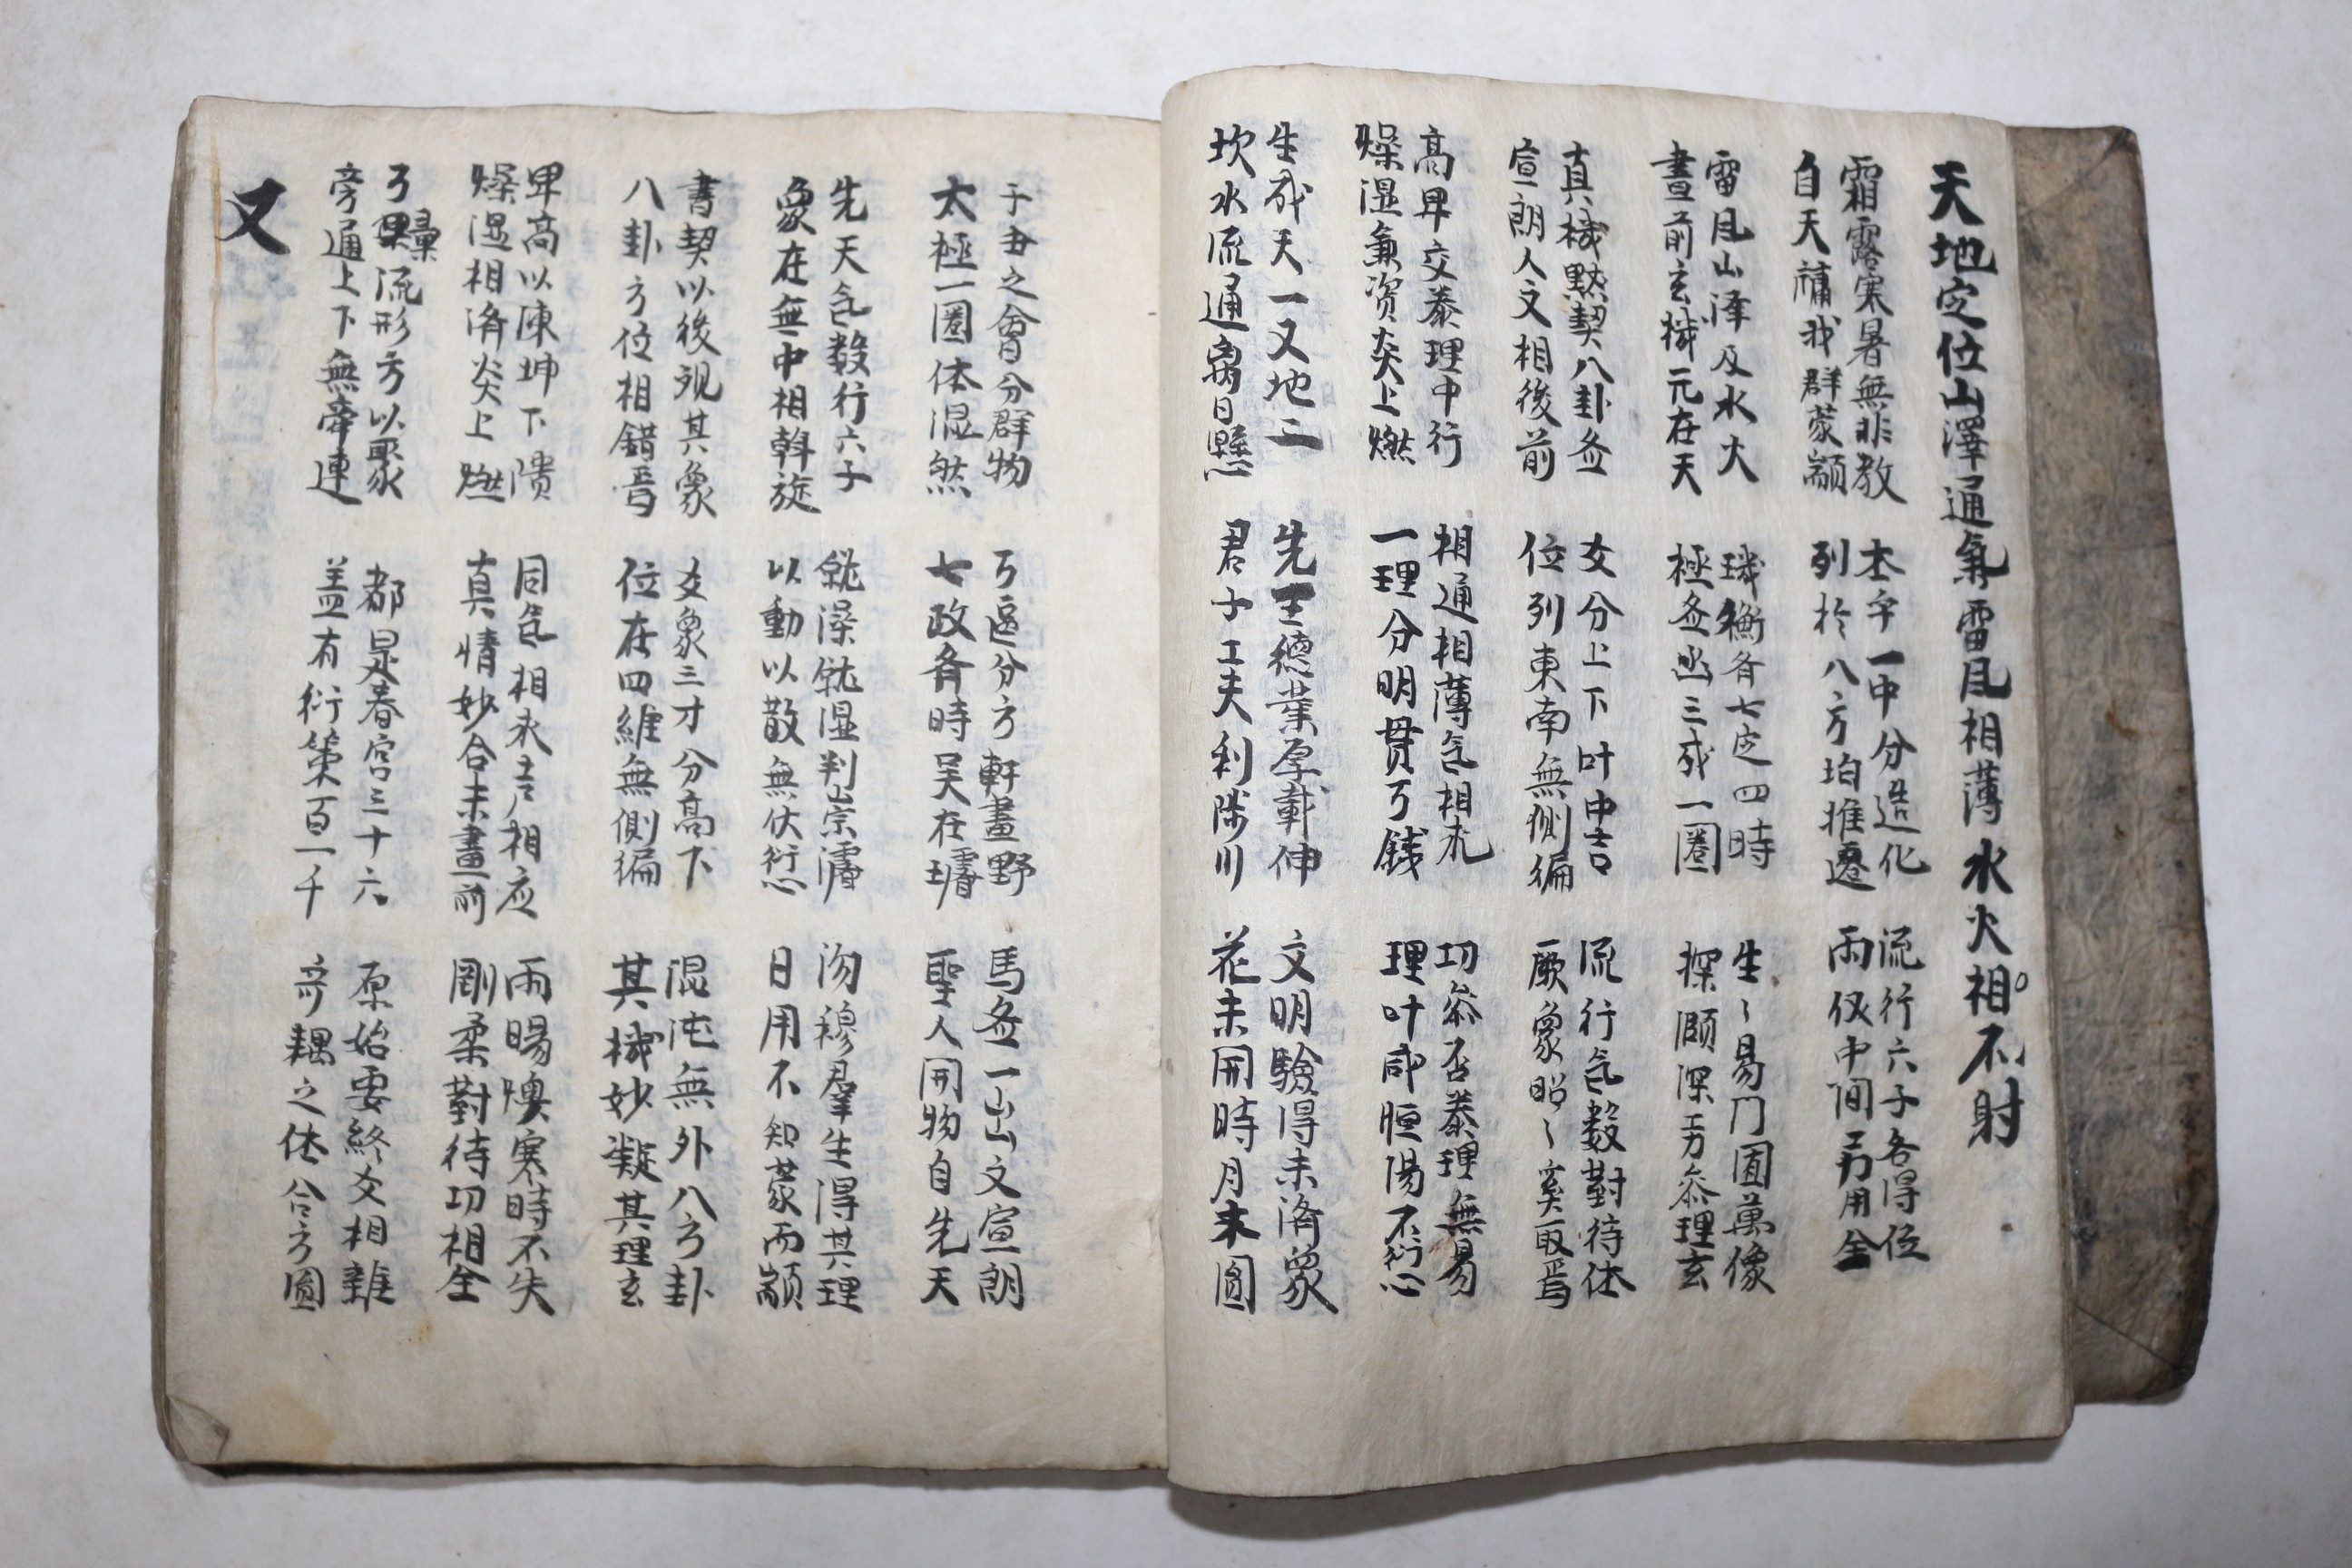 天地定位山澤通氣雷風相薄水火相不射
霜露寒暑無非教
自天牖我群蒙顓
本乎一中分造化
列於八方均推遷
流行六子各得位
兩仪中間功用全
雷風山澤及水火
畫前玄機元在天
璣衡齊七定四時
極盃函三成一圈
生〻易門囿萬像
探賾深功叅理玄
真機默契八卦盃
宣朗人文相後前
爻分上下叶中吉
位列東南無側徧
流行气数對待体
厥象昭〻奚取焉
高卑交泰理中行
燥湿兼資炎上燃
相通相薄气相求
一理分明貫万錢
切叅否泰理無易
理叶咸恒陽不衍心
生成天一又地二
坎水流通离日懸
先王德業厚載伸
君子工夫利涉川
文明驗得未濟象
花未開時月未圓
子丑之會分群物
太極一圈体混然
万區分方軒畫野
七政齊時吴在璿
馬盃一出文宣朗
聖人開物自先天
先天气数行六子
象在無中相斡旋
孰燥孰湿判崇濬
以動以散無伏愆
沕穆羣生得其理
日用不知蒙而顓
書契以後观其象
八卦方位相錯焉
爻象三才分高下
位在四維無側徧
混沌無外八方卦
其機妙凝其理玄
卑高以陳坤下隤
燥湿相濟炎上燃
同气相求声相应
真情妙合未畫前
雨暘燠寒時不失
剛柔對待切相全
万彙流形方以聚
旁通上下無牽連
都是春宮三十六
盖有衍策百一千
原始要終爻相雜
奇耦之体合方圓
又